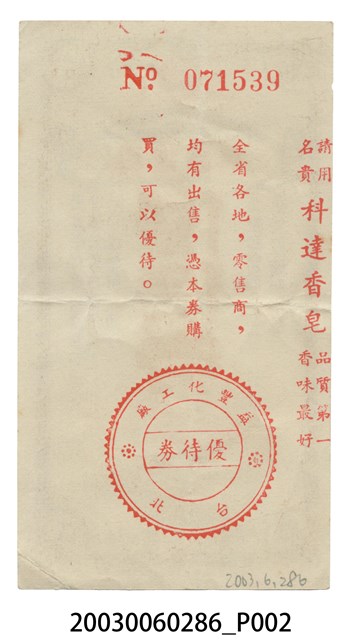 No. 071539
請用
名貴
科達香皂
品質第一
香味最好
全省各地，零售商，
均有出售，憑本券購
買，可以優待。
益豐化工廠
優待券
台北
2003,6,286
20030060286_P002